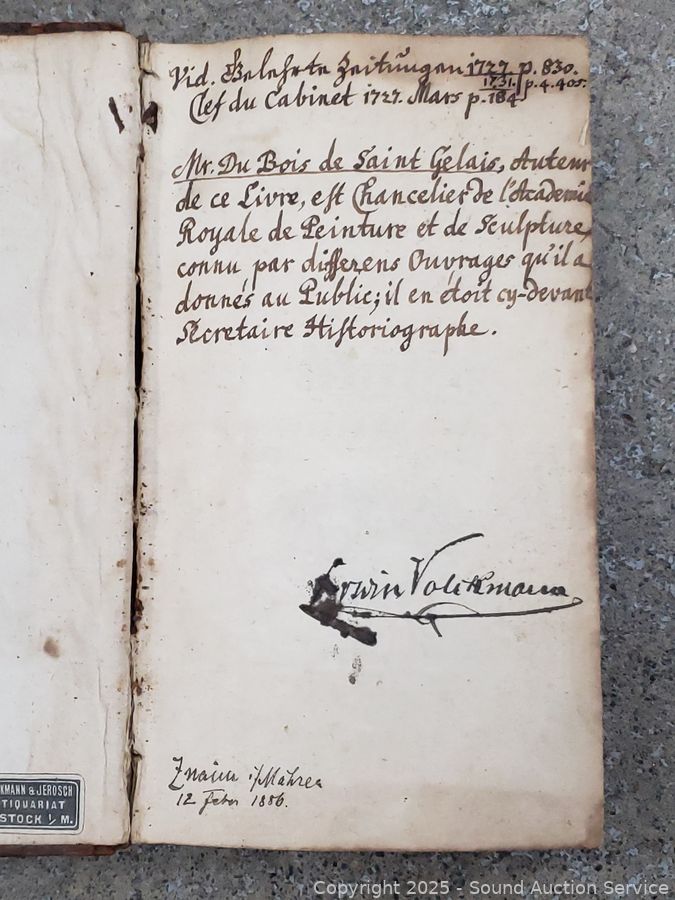 Vid. Gelehrte Zeitungen 1727. p. 830.
1731. p. 4. 405.
Clef du Cabinet 1727. Mars p. 184
Mr. Du Bois de Saint Gelais, Auteur
de ce Livre, est Chancelier de l'Academie
Royale de Peinture et de Sculpture,
connu par differens Ouvrages qu'il a
donnés au Public; il en étoit cy-devant
Secretaire Historiographe.
Erwin Volckmann
Znaim i/Mähren
12 Feber 1886.
KMANN & JEROSCH
TIQUARIAT
STOCK I/M.
Copyright 2025 - Sound Auction Service